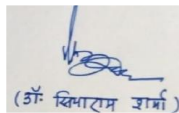 (डॉ. सियाराम शर्मा)